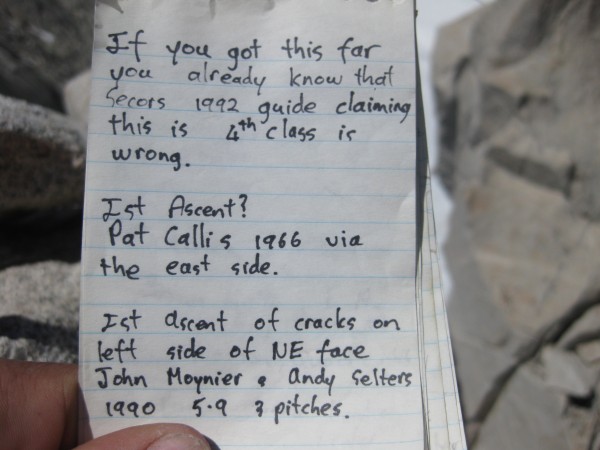 If you got this far
you already know that
Secors 1992 guide claiming
this is 4th class is
wrong.
Ist Ascent?
Pat Callis 1966 via
the east side.
Ist ascent of cracks on
left side of NE face
John Moynier & Andy Selters
1990 5.9 3 pitches.